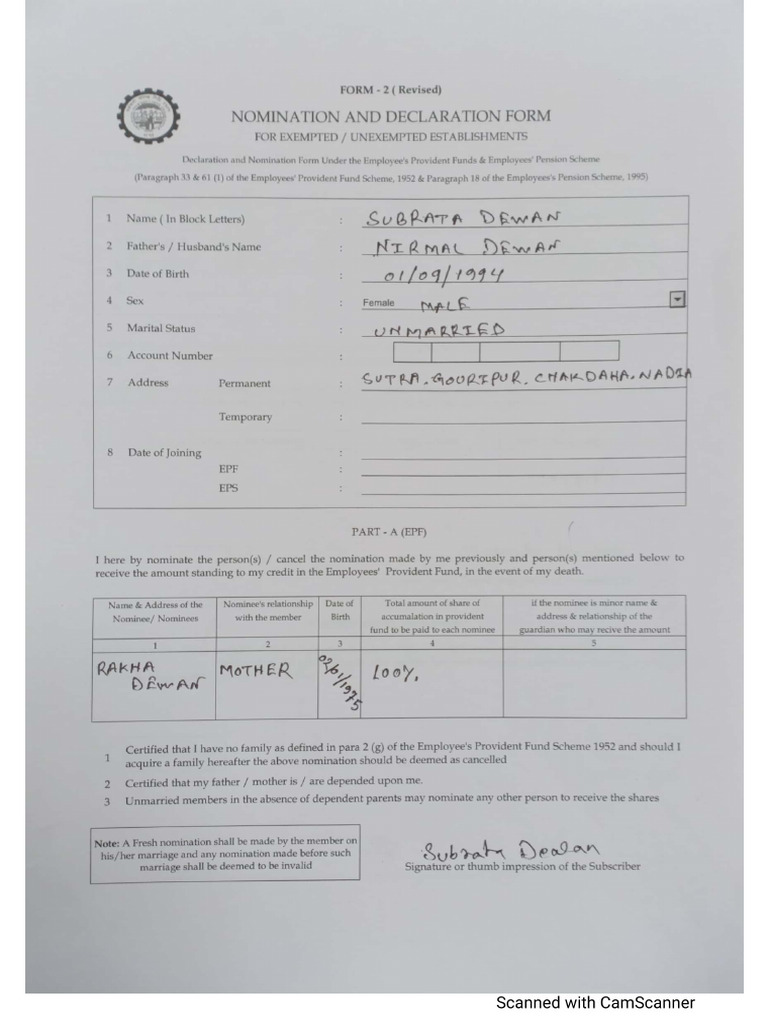 FORM - 2 ( Revised)
NOMINATION AND DECLARATION FORM
FOR EXEMPTED / UNEXEMPTED ESTABLISHMENTS
Declaration and Nomination Form Under the Employee's Provident Funds & Employees' Pension Scheme
(Paragraph 33 & 61 (1) of the Employees' Provident Fund Scheme, 1952 & Paragraph 18 of the Employees's Pension Scheme, 1995)
1 Name ( In Block Letters) : SUBRATA DEWAN
2 Father's / Husband's Name : NIRMAL DEWAN
3 Date of Birth : 01/09/1994
4 Sex : Female MALE
5 Marital Status : UNMARRIED
6 Account Number :
7 Address Permanent : SUTRA. GOURIPUR. CHAKDAHA. NADIA
Temporary :
8 Date of Joining :
EPF :
EPS :
PART - A (EPF)
I here by nominate the person(s) / cancel the nomination made by me previously and person(s) mentioned below to
receive the amount standing to my credit in the Employees' Provident Fund, in the event of my death.
Name & Address of the Nominee's relationship Date of Total amount of share of if the nominee is minor name &
Nominee/ Nominees with the member Birth accumalation in provident address & relationship of the
fund to be paid to each nominee guardian who may recive the amount
1 2 3 4 5
RAKHA MOTHER 02/01/1975 100%
DEWAN
1 Certified that I have no family as defined in para 2 (g) of the Employee's Provident Fund Scheme 1952 and should I
acquire a family hereafter the above nomination should be deemed as cancelled
2 Certified that my father / mother is / are depended upon me.
3 Unmarried members in the absence of dependent parents may nominate any other person to receive the shares
Note: A Fresh nomination shall be made by the member on
his/her marriage and any nomination made before such
marriage shall be deemed to be invalid
Subrata Dewan
Signature or thumb impression of the Subscriber
Scanned with CamScanner